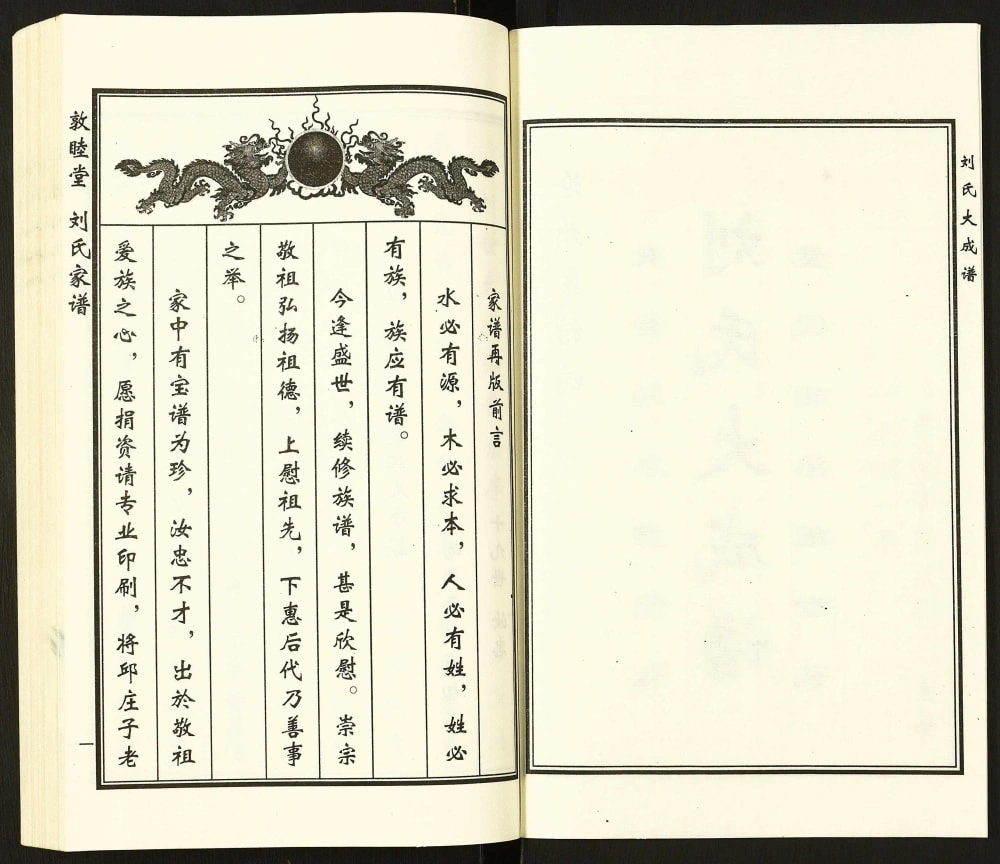 刘氏大成谱
家谱再版前言
水必有源，木必求本，人必有姓，姓必
有族，族应有谱。
今逢盛世，续修族谱，甚是欣慰。崇宗
敬祖弘扬祖德，上慰祖先，下惠后代乃善事
之举。
家中有宝谱为珍，汝忠不才，出於敬祖
爱族之心，愿捐资请专业印刷，将邱庄子老
敦睦堂 刘氏家谱
一